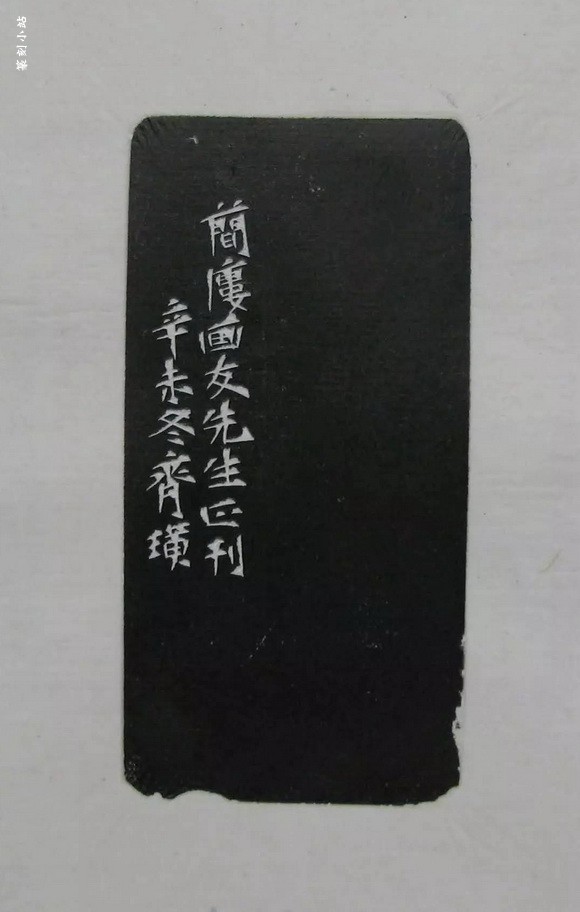 簡廔画友先生正刊
辛未冬齊璜
篆刻小站